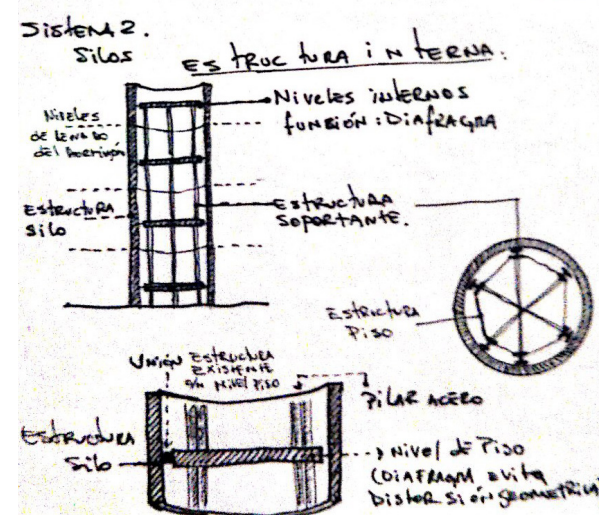 SISTEMA 2.
Silos
ESTRUCTURA INTERNA:
Niveles internos
función: Diafragma
Niveles
de llenado
del hormigón
Estructura
silo
Estructura
soportante.
Estructura
Piso
Unión Estructura
Existente
c/n Nivel Piso
Pilar acero
Estructura
Silo
Nivel de Piso
(Diafragm evita
Distorsión geometrica)